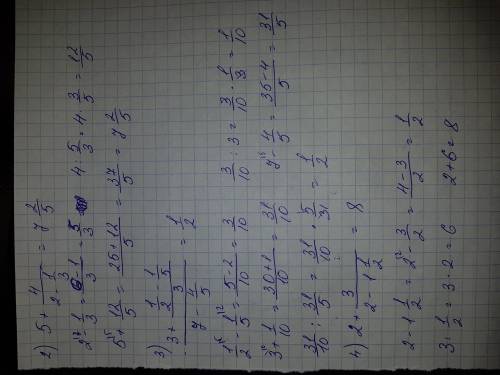 2) 5 + 4/(2 - 1/3) = 7 2/5
2 - 1/3 = (6-1)/3 = 5/3   4 : 5/3 = 4 · 3/5 = 12/5
5 + 12/5 = (25+12)/5 = 37/5 = 7 2/5
3) (3 + (1/2 - 1/5)/3)/(7 - 4/5) = 1/2
1/2 - 1/5 = (5-2)/10 = 3/10   3/10 : 3 = 3/10 · 1/3 = 1/10
3 + 1/10 = (30+1)/10 = 31/10   7 - 4/5 = (35-4)/5 = 31/5
31/10 : 31/5 = 31/10 · 5/31 = 1/2
4) 2 + 3/(2 - 1 1/2) = 8
2 - 1 1/2 = 2 - 3/2 = (4-3)/2 = 1/2
3 : 1/2 = 3 · 2 = 6   2+6=8